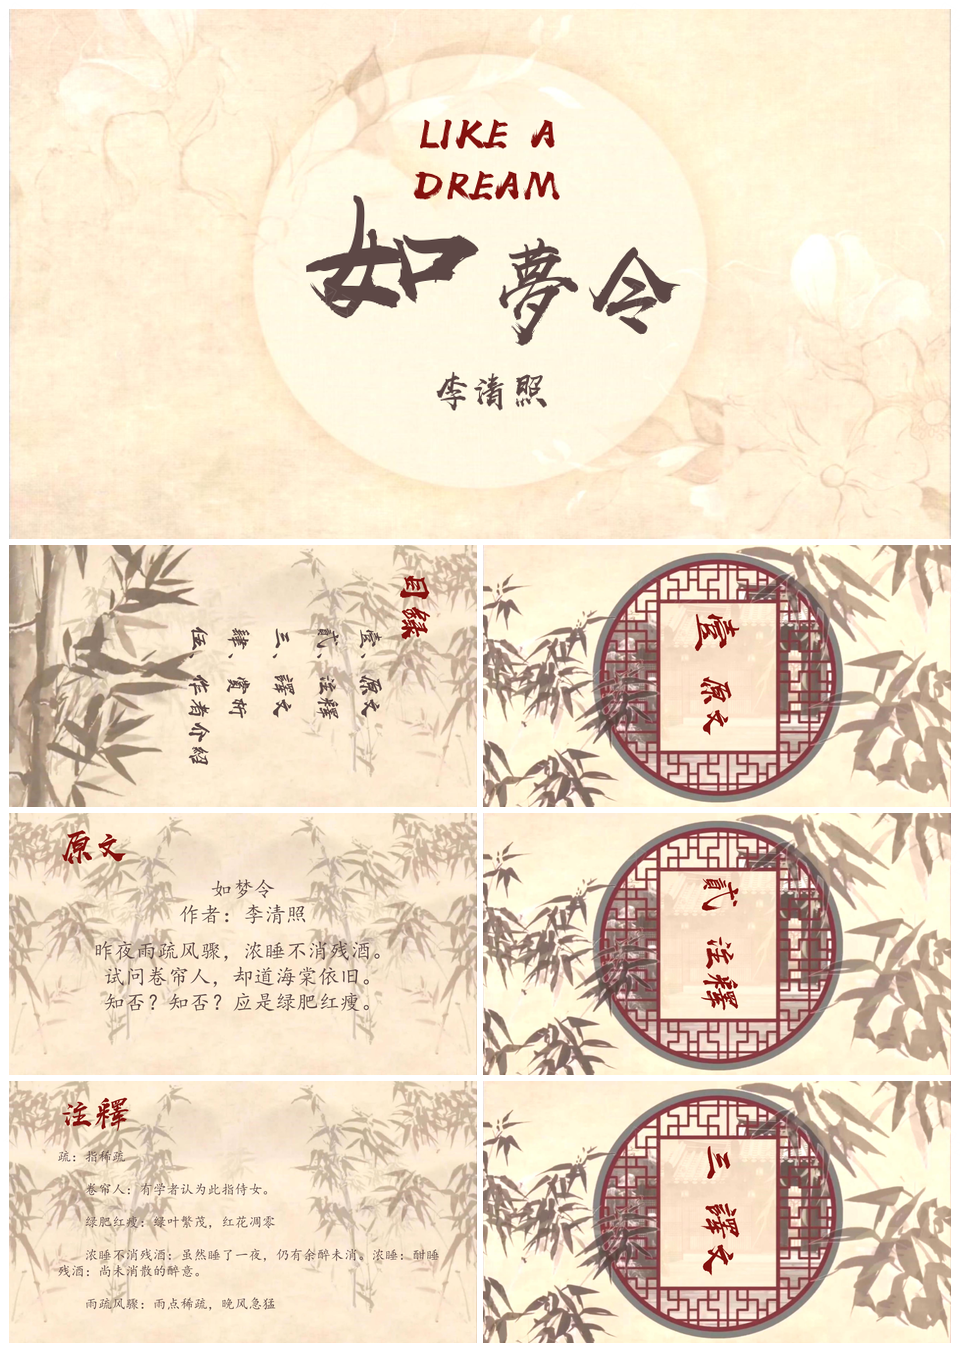 LIKE A
DREAM
如夢令
李清照
目録
壹、原文
貳、注釋
三、譯文
肆、赏析
伍、作者介紹
壹 原文
原文
如梦令
作者：李清照
昨夜雨疏风骤，浓睡不消残酒。
试问卷帘人，却道海棠依旧。
知否？知否？应是绿肥红瘦。
貳 注釋
注釋
疏：指稀疏
卷帘人：有学者认为此指侍女。
绿肥红瘦：绿叶繁茂，红花凋零
浓睡不消残酒：虽然睡了一夜，仍有余醉未消。浓睡：酣睡
残酒：尚未消散的醉意。
雨疏风骤：雨点稀疏，晚风急猛
三 譯文